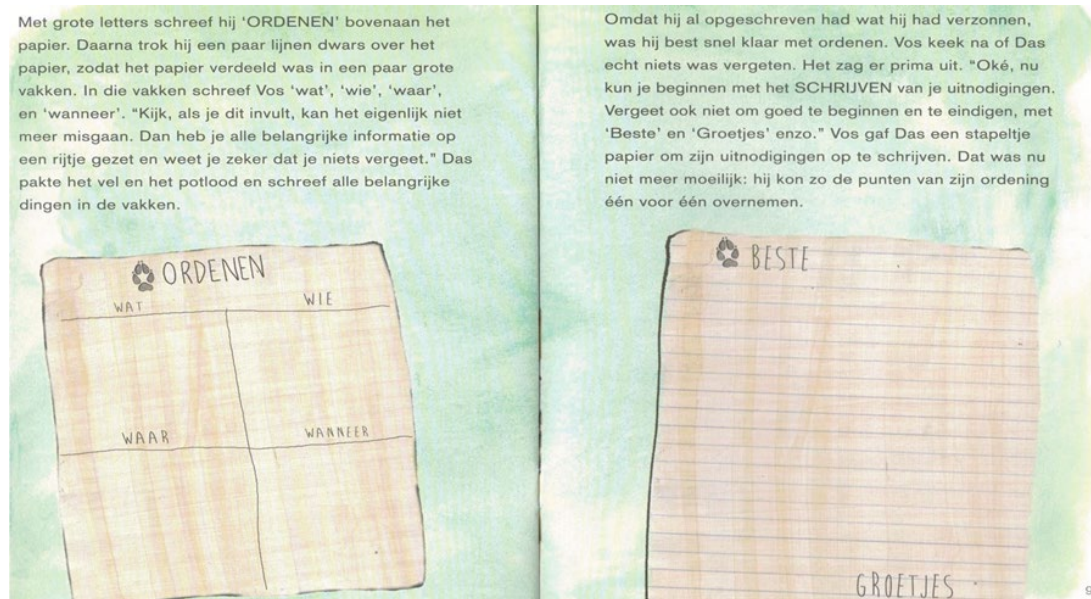 Met grote letters schreef hij ‘ORDENEN’ bovenaan het
papier. Daarna trok hij een paar lijnen dwars over het
papier, zodat het papier verdeeld was in een paar grote
vakken. In die vakken schreef Vos ‘wat’, ‘wie’, ‘waar’,
en ‘wanneer’. “Kijk, als je dit invult, kan het eigenlijk niet
meer misgaan. Dan heb je alle belangrijke informatie op
een rijtje gezet en weet je zeker dat je niets vergeet." Das
pakte het vel en het potlood en schreef alle belangrijke
dingen in de vakken.
ORDENEN
WAT WIE
WAAR WANNEER
Omdat hij al opgeschreven had wat hij had verzonnen,
was hij best snel klaar met ordenen. Vos keek na of Das
echt niets was vergeten. Het zag er prima uit. "Oké, nu
kun je beginnen met het SCHRIJVEN van je uitnodigingen.
Vergeet ook niet om goed te beginnen en te eindigen, met
‘Beste’ en ‘Groetjes’ enzo." Vos gaf Das een stapeltje
papier om zijn uitnodigingen op te schrijven. Dat was nu
niet meer moeilijk: hij kon zo de punten van zijn ordening
één voor één overnemen.
BESTE
GROETJES